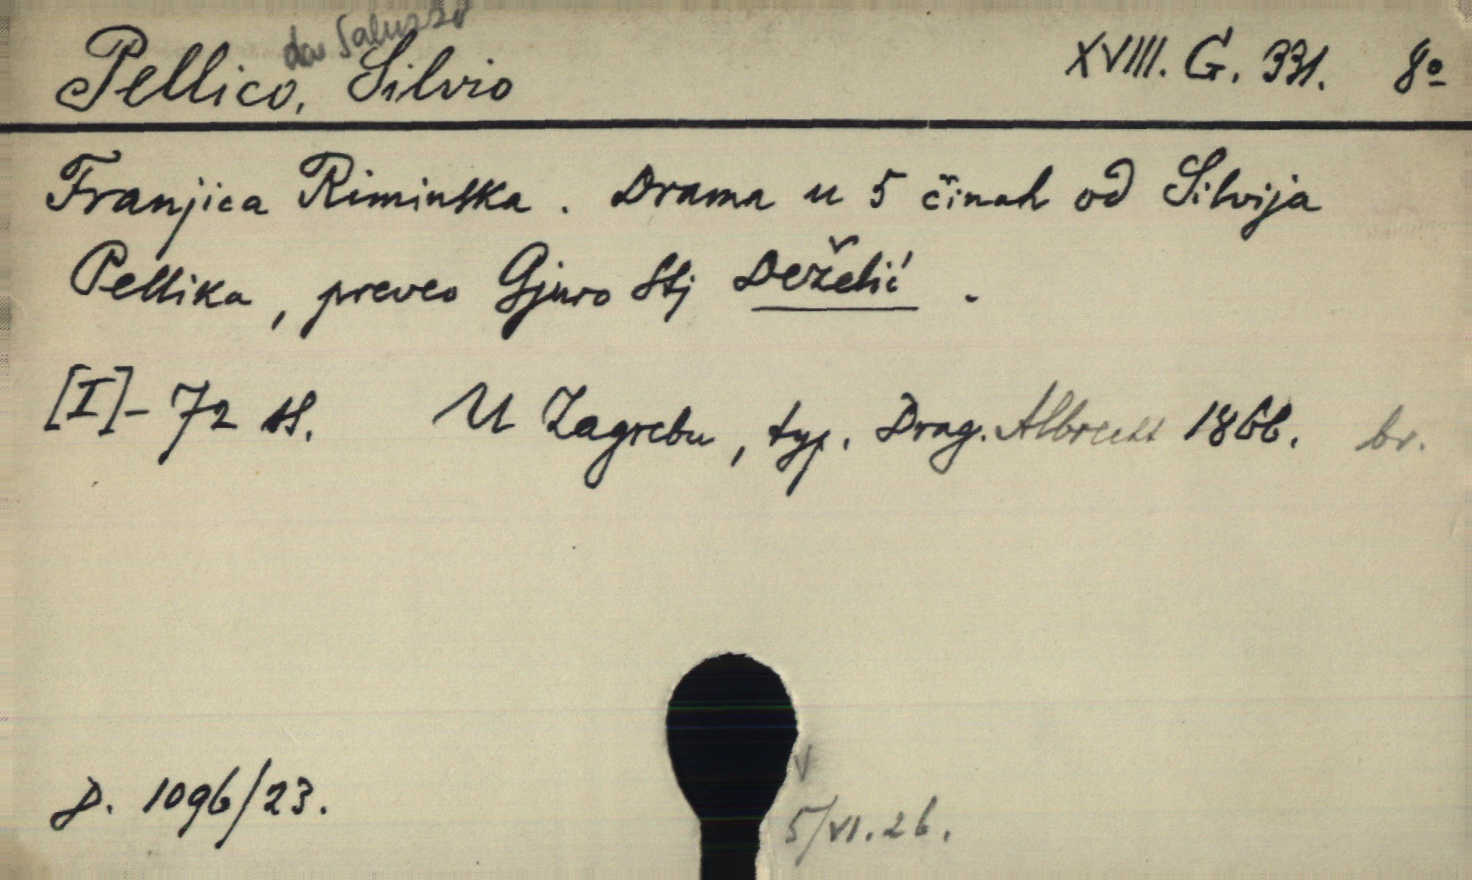 da Saluzzo
Pellico, Silvio XVIII. G. 331. 8º
Franjica Riminska. Drama u 5 činah od Silvija
Pellika, preveo Gjuro Stj Deželić.
[I]-72 st. U Zagrebu, typ. Drag. Albrecht 1866. br.
D. 1096/23.
5/VI.26.